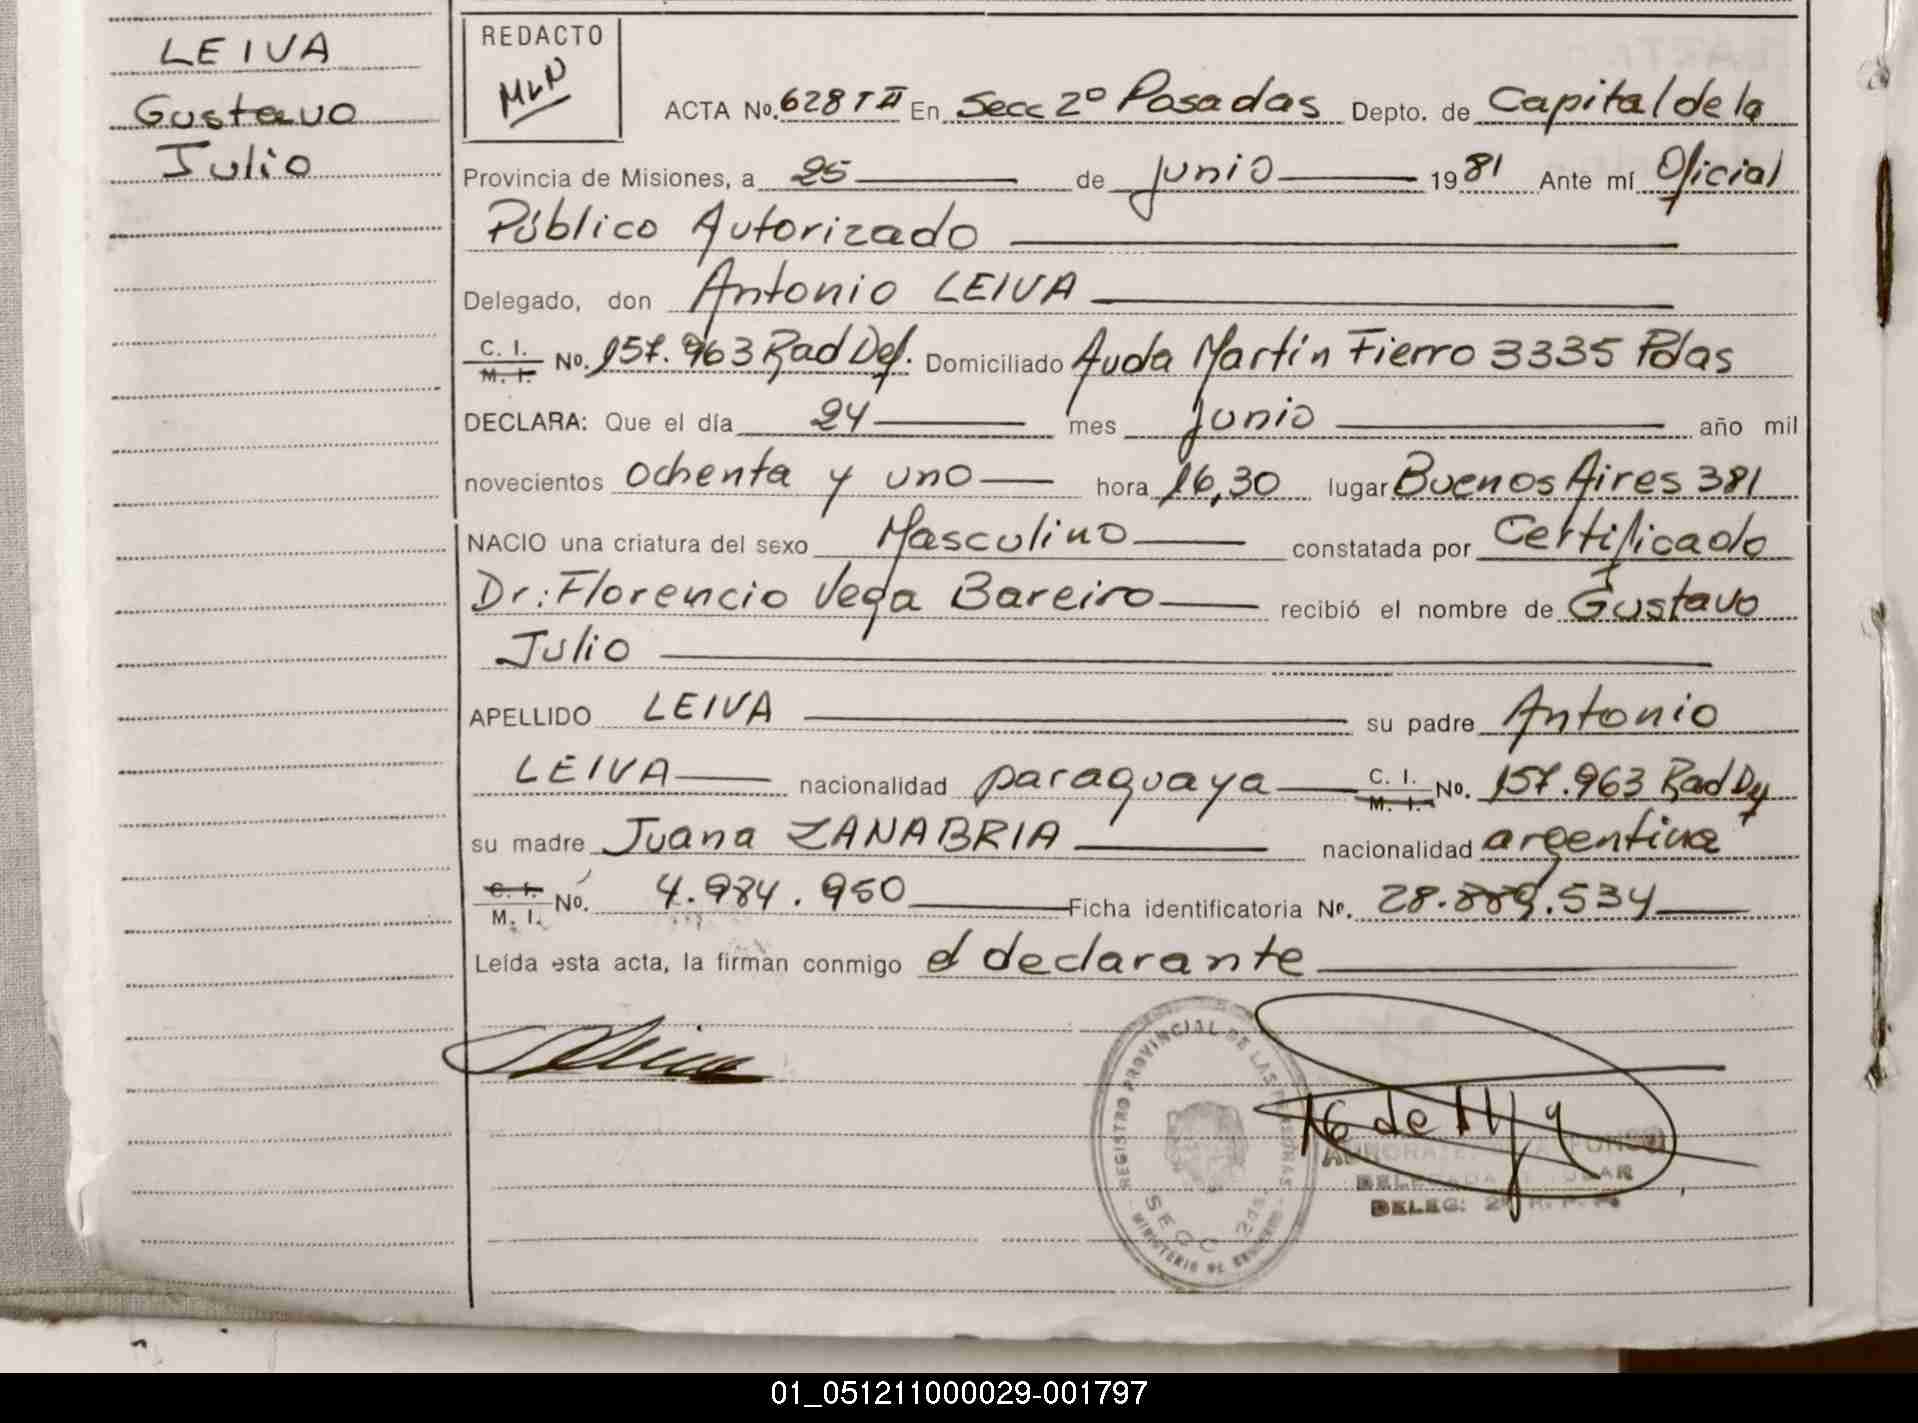 LEIVA
Gustavo
Julio
REDACTO
MLN
ACTA No. 628 T II En Secc 2º Posadas Depto. de Capital de la
Provincia de Misiones, a 25 de junio 1981 Ante mí Oficial
Público Autorizado
Delegado, don Antonio LEIVA
C. I. M. I. No. 157.963 Rad Def. Domiciliado Avda Martín Fierro 3335 Pdas
DECLARA: Que el día 24 mes junio año mil
novecientos ochenta y uno hora 16,30 lugar Buenos Aires 381
NACIO una criatura del sexo Masculino constatada por Certificado
Dr: Florencio Vega Bareiro recibió el nombre de Gustavo
Julio
APELLIDO LEIVA su padre Antonio
LEIVA nacionalidad paraguaya C. I. M. I. No. 157.963 Rad Def
su madre Juana ZANABRIA nacionalidad argentina
C. I. M. I. No. 4.984.950 Ficha identificatoria No. 28.889.534
Leída esta acta, la firman conmigo el declarante
REGISTRO PROVINCIAL DE LAS PERSONAS
SECC 2da.
MINISTERIO DE GOBIERNO
DELEGADA TITULAR
DELEG: 2º R. P. P.
01_051211000029-001797